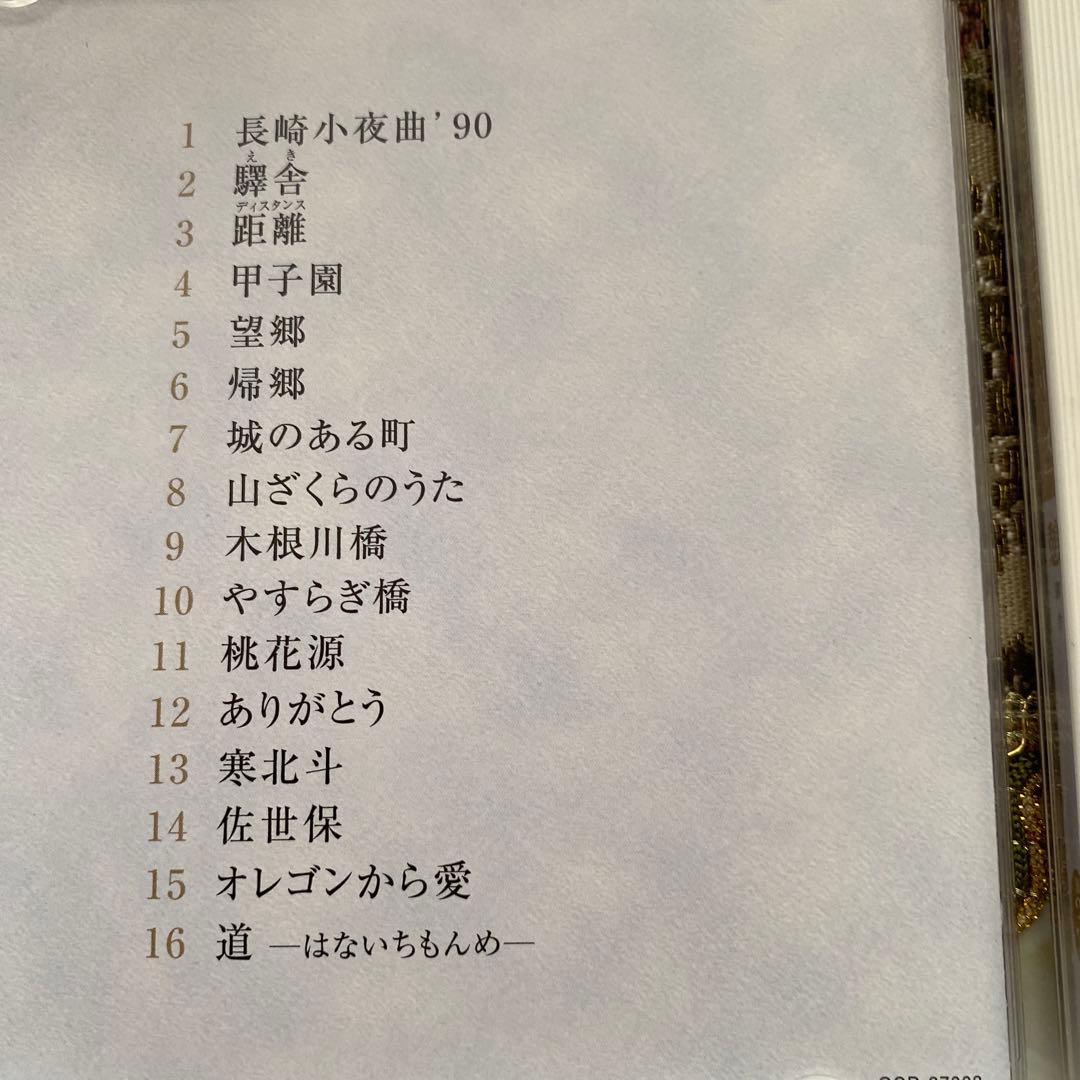 1 長崎小夜曲'90
えき
2 驛舎
ディスタンス
3 距離
4 甲子園
5 望郷
6 帰郷
7 城のある町
8 山ざくらのうた
9 木根川橋
10 やすらぎ橋
11 桃花源
12 ありがとう
13 寒北斗
14 佐世保
15 オレゴンから愛
16 道 ―はないちもんめ―